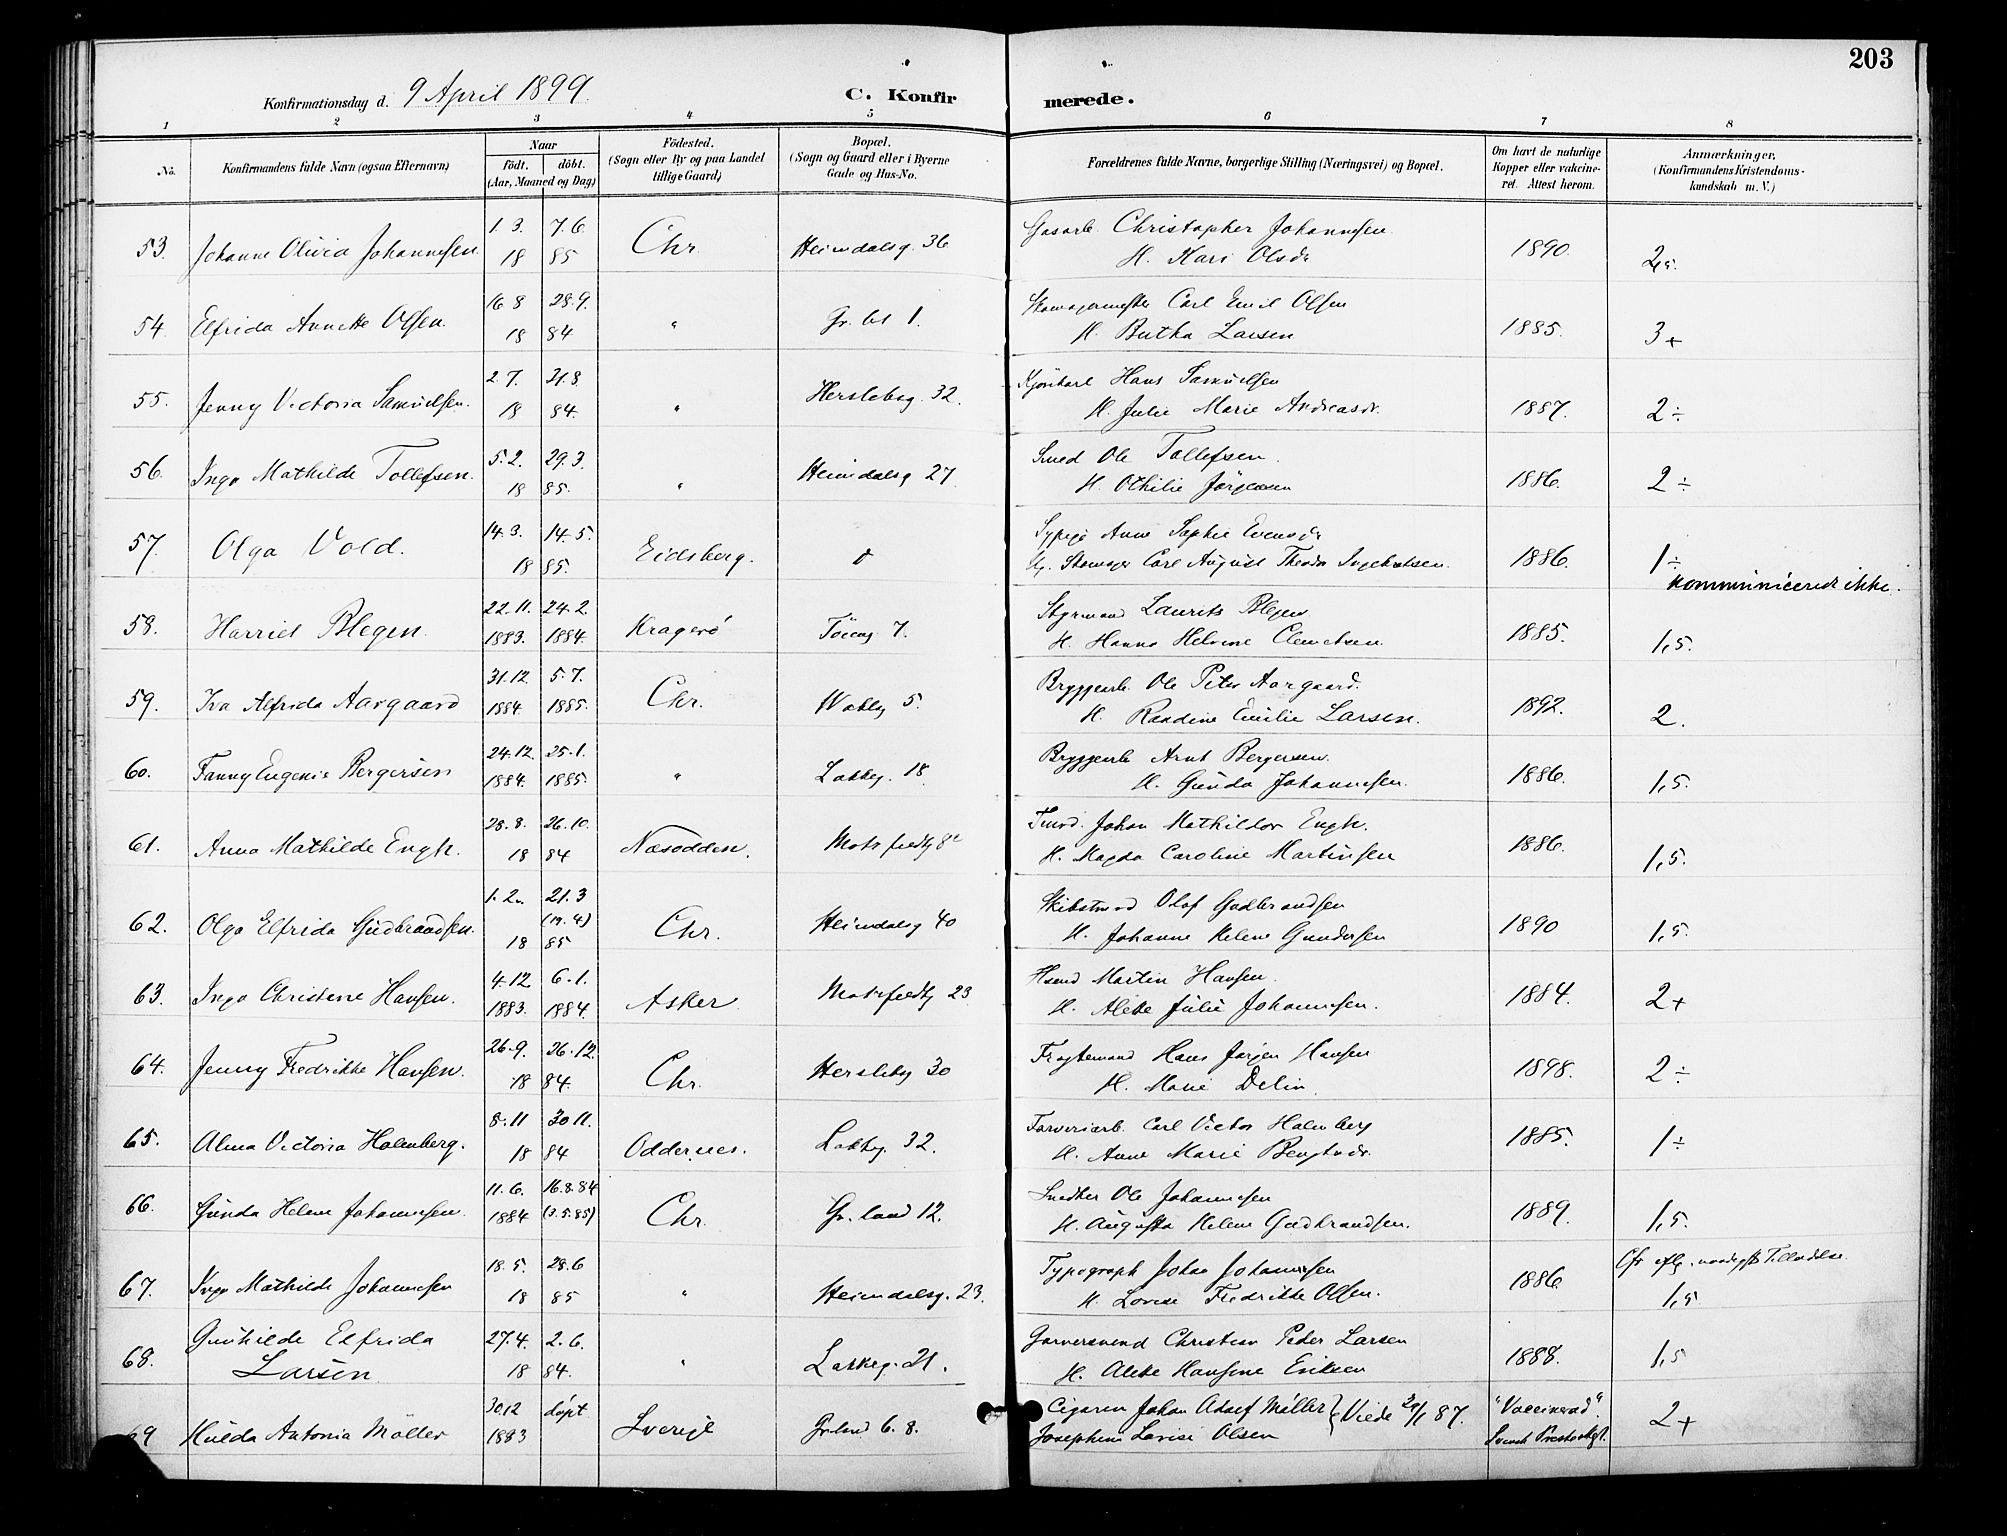 203
Konfirmationsdag d. 9 April 1899.
C. Konfirmerede.
1 2 3 4 5 6 7 8
No. Konfirmandens fulde Navn (ogsaa Efternavn) Naar født. døbt. (Aar, Maaned og Dag) Fødested. (Sogn eller By og paa Landet tillige Gaard) Bopæl. (Sogn og Gaard eller i Byerne Gade og Hus-No. Forældrenes fulde Navne, borgerlige Stilling (Næringsvei) og Bopæl. Om havt de naturlige Kopper eller vakcineret. Attest herom. Anmærkninger, (Konfirmandens Kristendomskundskab m. V.)
53. Johanne Olivia Johannesen. 1.3. 7.6. 18 85 Chr. Heimdalsg. 36 Gasarb. Christopher Johannesen. H. Kari Olsdr 1890. 2,5.
54. Elfrida Annette Olsen. 16.8 28.9. 18 84 " Gr. bl 1. Skomagermester Carl Emil Olsen H. Berthe Larsen 1885. 3+
55. Jenny Victoria Samuelsen. 2.7. 31.8. 18 84. " Herslebsg. 32. Kjørekarl Hans Samuelsen H. Julie Marie Andreasdr. 1887. 2÷
56. Inga Mathilde Tollefsen. 5.2. 29.3. 18 85. " Heimdalsg 27. Smed Ole Tollefsen. H. Othilie Jørgensen 1886. 2÷
57. Olga Vold. 14.3. 14.5. 18 85. Eidsberg. Sypige Anne Sophie Evensdr Skomager Carl August Theodor Ingebretsen. 1886. 1÷ kommunicerede ikke.
58. Harriet Blegen. 22.11. 24.2. 1883. 1884. Kragerø Tøieng. 7. Styrmand Laurits Blegen H. Hanna Helvine Clemetsen. 1885. 1,5.
59. Iva Alfrida Aargaard 31.12. 5.7. 1884. 1885. Chr. Wahlsg 5. Bryggearb. Ole Peter Aargaard. H. Randine Emilie Larsen. 1892. 2.
60. Fanny Eugenie Bergersen 24.12. 25.1. 1884. 1885. " Lakkeg. 18. Bryggearb Arnt Bergersen. H. Gunda Johannesen. 1886. 1,5.
61. Anna Mathilde Engh. 28.8. 26.10. 18 84 Næsodden. Motzfeldtg Johan Mathildor Engh. H. Magda Caroline Martinsen 1886. 1,5.
62. Olga Elfrida Gudbrandsen. 1.2. 21.3 (19.4) 18 85 Chr. Heimdalsg 40 Olaf Gudbrandsen H. Johanne Helene Gundersen 1890 1,5.
63. Inga Christine Hansen. 4.12 6.1. 1883. 1884. Asker Motzfeldtg 23 Martin Hansen. H. Alette Julie Johannesen. 1884. 2+
64. Jenny Fredrikke Hansen. 26.9. 26.12. 18 84. Chr. Herslebsg 30 Fragtemand Hans Jørgen Hansen H. Marie Delin 1898. 2÷
65. Alma Victoria Holmberg. 8.11 30.11. 18 84 Oddernes. Lakkeg. 32. Farveriarb. Carl Victor Holmberg H. Anne Marie Bengtsdr. 1885. 1÷
66. Gunda Helene Johannesen. 11.6. 16.8.84 1884 (3.5.85) Chr. Grønland 12. Snedker Ole Johannesen H. Augusta Helene Gudbrandsen. 1889. 1,5.
67. Inga Mathilde Johannesen 18.5. 28.6 18 85 " Heimdalsg. 23. Typograph Johan Johannesen H. Lovise Fredrikke Olsen. 1886. Tilladelse. 1,5
68. Gunhilde Elfrida Larsen 27.4. 2.6. 18 84. " Lakkeg. 21. Garversvend Christian Peder Larsen H. Alette Hansine Eriksen 1888. 1,5
69 Hulda Antonia Möller 30.12 döpt 1883 Sverige Grland 6.8. Cigarm Johan Adolf Møller Josephine Lovise Olsen } Viede 87. "Vaccinerad" Svensk Presteatt. 2+